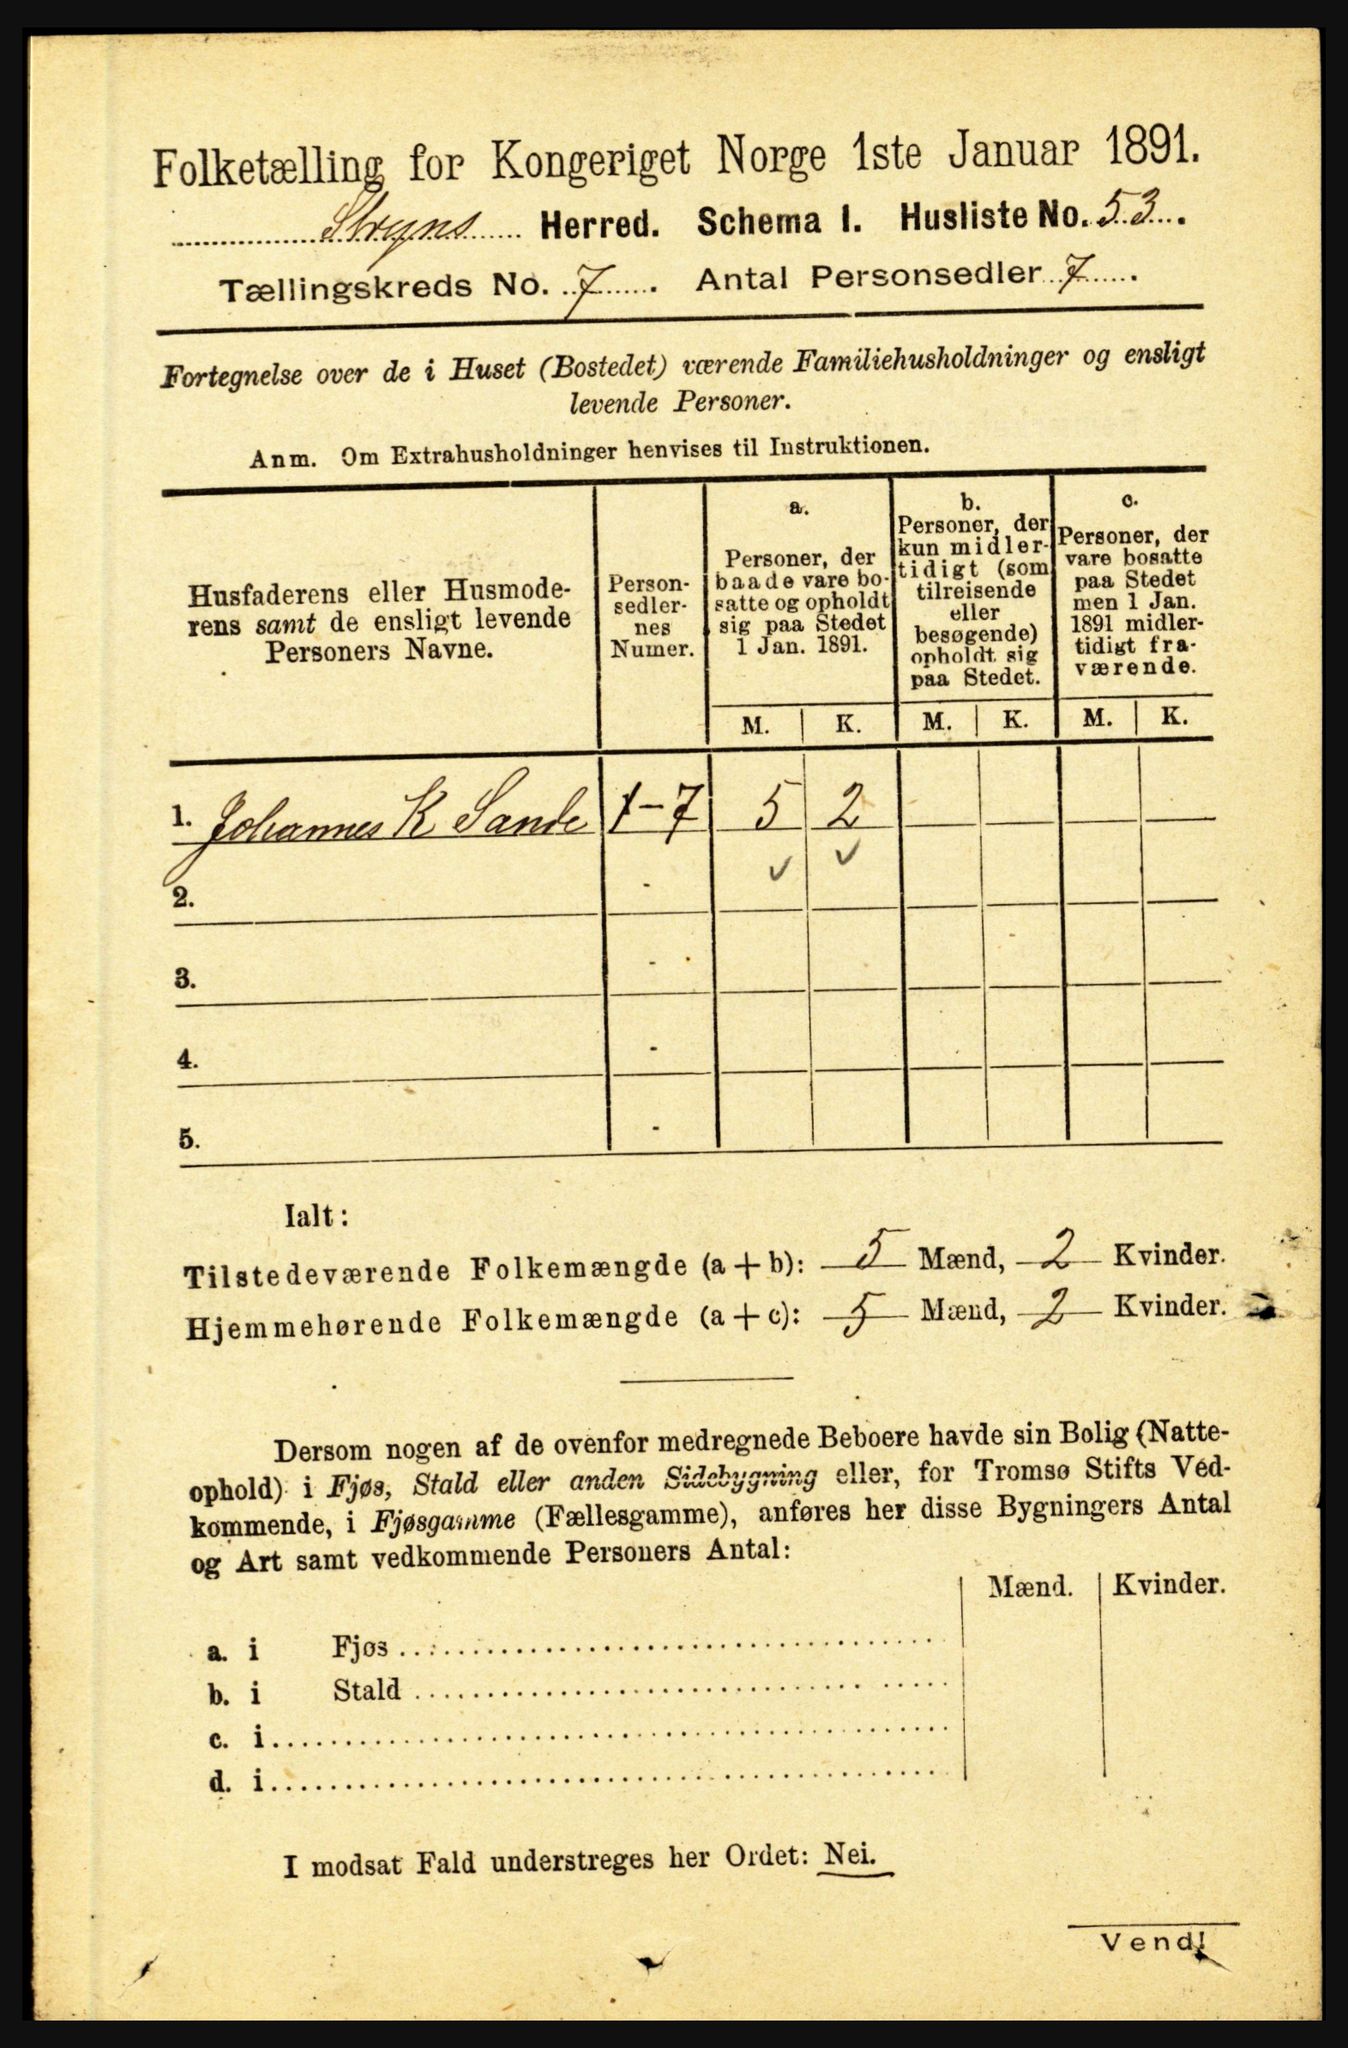 Folketælling for Kongeriget Norge 1ste Januar 1891.
Stryns Herred. Schema I. Husliste No. 53.
Tællingskreds No. 7. Antal Personsedler 7.
Fortegnelse over de i Huset (Bostedet) værende Familiehusholdninger og ensligt
levende Personer.
Anm. Om Extrahusholdninger henvises til Instruktionen.
Husfaderens eller Husmode-
rens samt de ensligt levende
Personers Navne.
Person-
sedler-
nes
Numer.
a.
Personer, der
baade vare bo-
satte og opholdt
sig paa Stedet
1 Jan. 1891.
b.
Personer, der
kun midler-
tidigt (som
tilreisende
eller
besøgende)
opholdt sig
paa Stedet.
c.
Personer, der
vare bosatte
paa Stedet
men 1 Jan.
1891 midler-
tidigt fra-
værende.
M. K. M. K. M. K.
1. Johannes K Sande 1-7 5 2
2. -
3. -
4. -
5. -
Ialt:
Tilstedeværende Folkemængde (a+b): 5 Mænd, 2 Kvinder.
Hjemmehørende Folkemængde (a+c): 5 Mænd, 2 Kvinder.
Dersom nogen af de ovenfor medregnede Beboere havde sin Bolig (Natte-
ophold) i Fjøs, Stald eller anden Sidebygning eller, for Tromsø Stifts Ved-
kommende, i Fjøsgamme (Fællesgamme), anføres her disse Bygningers Antal
og Art samt vedkommende Personers Antal:
Mænd. Kvinder.
a. i Fjøs
b. i Stald
c. i
d. i
I modsat Fald understreges her Ordet: Nei.
Vend!